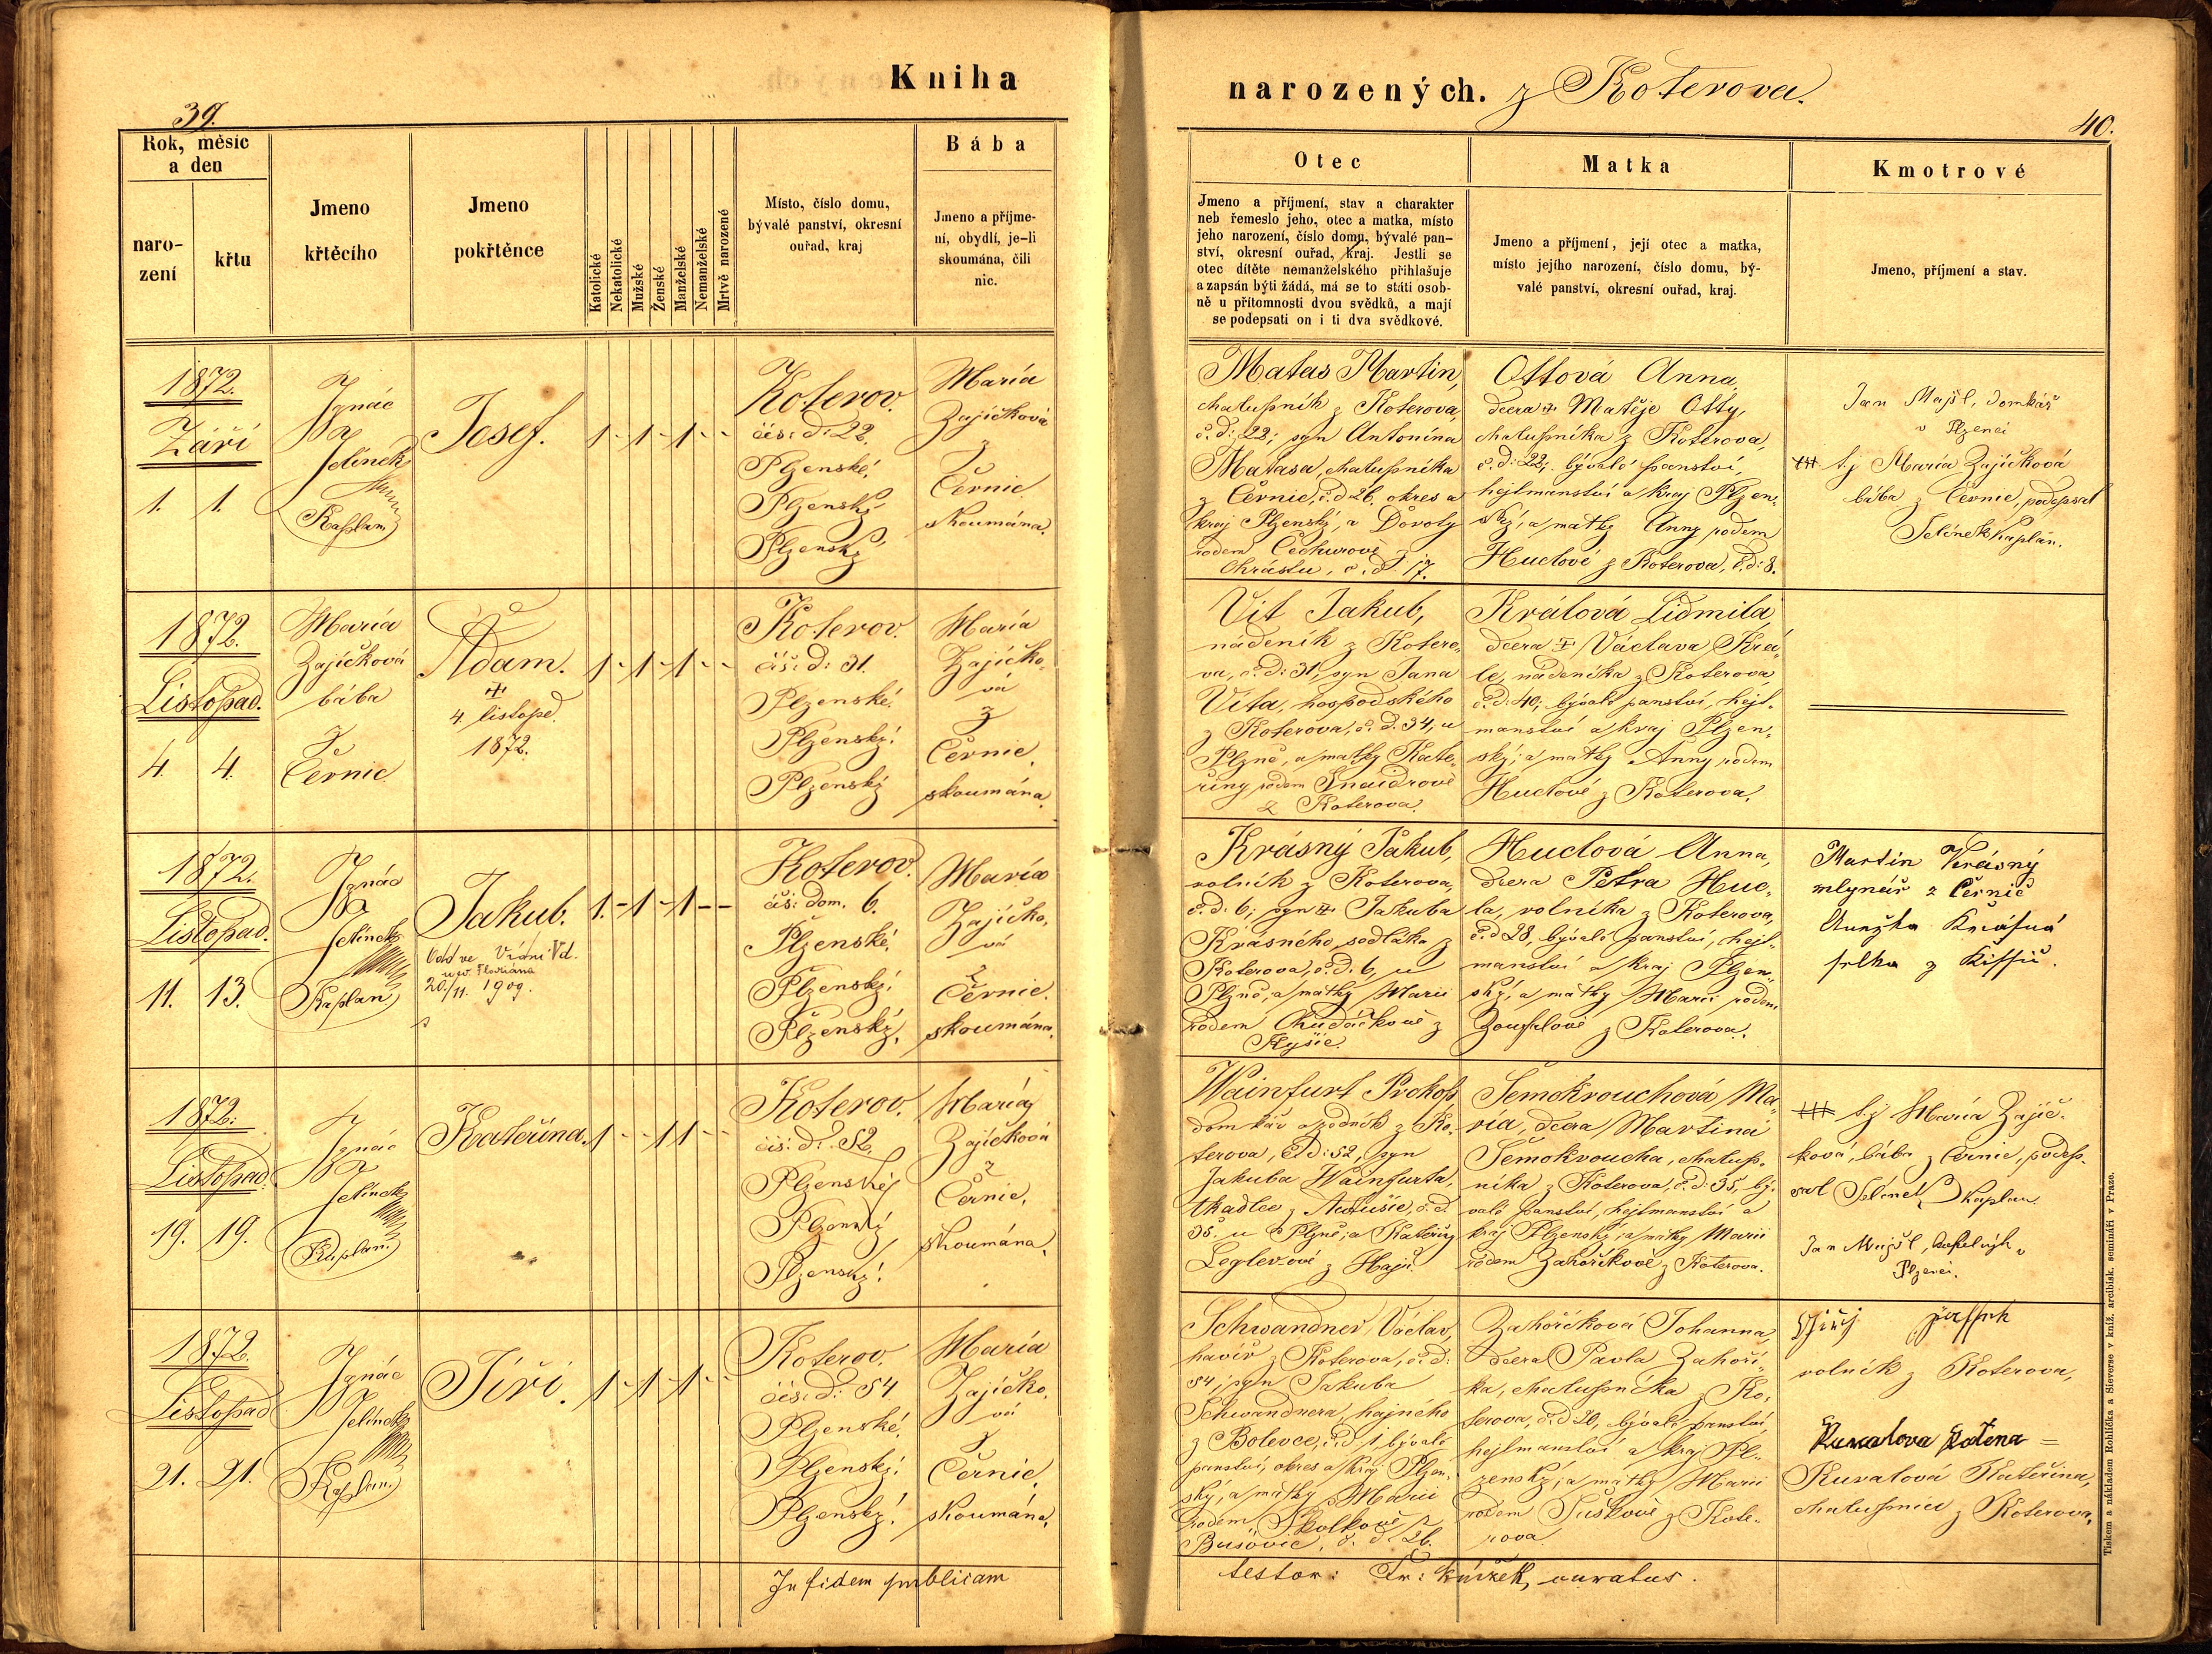 Kniha
narozených. z Koterova.
39.
40.
Rok, měsíc
a den
naro-
zení
křtu
Jmeno
křtěcího
Jmeno
pokřtěnce
Katolické
Nekatolické
Mužské
Ženské
Manželské
Nemanželské
Mrtvě narozené
Místo, číslo domu,
bývalé panství, okresní
ouřad, kraj
Bába
Jmeno a příjme-
ní, obydlí, je-li
skoumána, čili
nic.
Otec
Jmeno a příjmení, stav a charakter
neb řemeslo jeho, otec a matka, místo
jeho narození, číslo domu, bývalé pan-
ství, okresní ouřad, kraj. Jestli se
otec dítěte nemanželského přihlašuje
a zapsán býti žádá, má se to státi osob-
ně u přítomnosti dvou svědků, a mají
se podepsati on i ti dva svědkové.
Matka
Jmeno a příjmení, její otec a matka,
místo jejího narození, číslo domu, bý-
valé panství, okresní ouřad, kraj.
Kmotrové
Jmeno, příjmení a stav.
1872.
Září
1. 1.
Ignác
Jelínek
Kaplan
Josef.
1 - 1 - 1 - -
Koterov.
čís: d: 22.
Plzenské,
Plzenský
Plzenský
Maria
Zajíčková
z
Černic
skoumána.
Matas Martin,
chalupník z Koterova,
č.d: 22; syn Antonína
Matasa, chalupníka
z Černic, č.d 26. okres a
kraj Plzenský, a Doroty
rodem Čechurové
Chrástu, č.d. 17.
Ottová Anna,
dcera Matěje Otty,
chalupníka z Koterova,
č.d: 22; bývalé panství,
hejtmanství a kraj Plzen-
ský, a matky Anny rodem
Huclové z Koterova, č.d: 8.
Jan Majšl, domkář
v Plzenci
+++ t.j Maria Zajíčková
bába z Černic, podepsal
Jelínek kaplan.
1872.
Listopad.
4. 4.
Maria
Zajíčková
bába
z
Černic
Adam.
4. listopd.
1872.
1 - 1 - 1 - -
Koterov.
čís: d: 31.
Plzenské.
Plzenský.
Plzenský
Maria
Zajíčko-
vá
z
Černic,
skoumána.
Vít Jakub,
nádeník z Kotero-
va, č.d: 31, syn Jana
Víta, hospodského
z Koterova, č.d. 34, u
Plzně, a matky Kate-
řiny rodem Šnaidrové
z Koterova.
Králová Lidmila,
dcera Václava Krá-
le, nádeníka z Koterova
č.d: 40; bývalé panství, hejt-
manství a kraj Plzen-
ský; a matky Anny rodem
Huclové z Koterova.
1872.
Listopad.
11. 13.
Ignác
Jelínek
Kaplan
Jakub.
Odd ve Vídni Vd.
u sv. Floriána
20./11. 1909.
1. - 1 - 1 - -
Koterov.
čís: dom. 6.
Plzenské,
Plzenský.
Plzenský.
Maria
Zajíčko-
vá
z
Černic.
skoumána.
Krásný Jakub,
rolník z Koterova,
č.d: 6; syn Jakuba
Krásného sedláka z
Koterova, č.d. 6, u
Plzně; a matky Marii
rodem Chudáčkové z
Kyšic.
Huclová Anna,
dcera Petra Huc-
la, rolníka z Koterova,
č.d 28, bývalé panství, hejt-
manství a kraj Plzen-
ský, a matky Marii rodem
Zouplové z Koterova.
Martin Krásný
mlynář z Černic
Anežka Krásná
selka z
1872.
Listopad.
19. 19.
Ignác
Jelínek
Kaplan.
Kateřina.
1 - - 1 1 - -
Koterov.
čís: d: 52.
Plzenský
Plzenský
Plzenský.
Maria
Zajíčková
z
Černic,
skoumána.
Wainfurt Prokop
domkář a zedník z Ko-
terova, č.d: 52, syn
Jakuba Wainfurta,
tkadlce z č.d.
35. u Plzně; a Kateřiny
Leglerové z Háje.
Šemokrouchová Ma-
ria, dcera Martina
Šemokroucha, chalup-
níka z Koterova, č.d: 35, bý-
valé panství, hejtmanství a
kraj Plzenský; a matky Marii
rodem Zahoříkové z Koterova.
+++ t.j Maria Zajíč-
ková, bába z Černic, podep-
sal Jelínek Kaplan
Jan Majšl, v
Plzenci.
1872.
Listopad
21. 21.
Ignác
Jelínek
Kaplan.
Jiří.
1 - 1 - 1 - -
Koterov.
čís: d: 54
Plzenské,
Plzenský.
Plzenský.
Maria
Zajíčko-
vá
z
Černic,
skoumána.
Schwandner Václav,
havíř z Koterova, č.d:
54; syn Jakuba
Schwandnera, hajného
z Bolevce, č.d 1, bývalé
panství, okres a kraj Plzen-
ský, a matky Marii
rodem Školkové z
Bušovic, č.d. 26.
Zahoříková Johanna,
dcera Pavla Zahoří-
ka, chalupníka z Ko-
terova, č.d 20, bývalé panství,
hejtmanství a kraj Pl-
zenský; a matky Marii
rodem Tuškové z Kote-
rova.
Jiřij
rolník z Koterova,
Kuralova Katena =
Kuralová Kateřina,
chalupnice z Koterova.
In fidem publicam
testor: Fr: Kůrzek, curatus.
Tiskem a nákladem Rohlíčka a Sieverse v kníž. arcibisk. semináři v Praze.